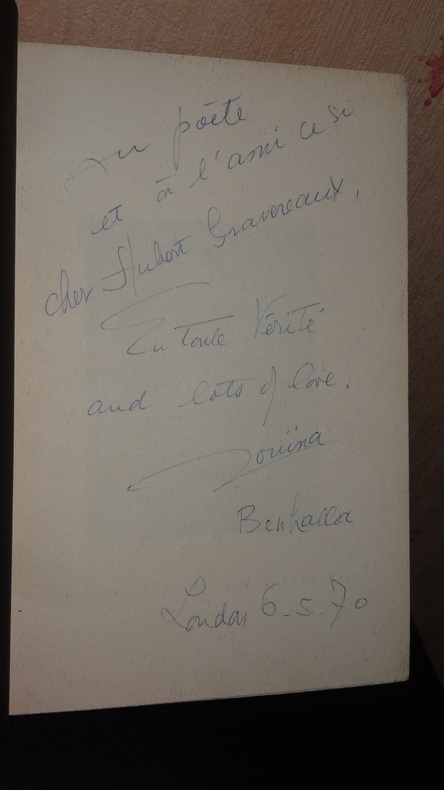 Au poëte
et à l'ami ce si
cher Hubert Gravereaux,
En toute Vérité
and lots of love.
Douina
Benhalla
London 6.5.70